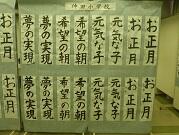 仲田小学校
お正月
お正月
元気な子
元気な子
希望の朝
希望の朝
夢の実現
夢の実現
お正月
お正月
お正月
元気な子
元気な子
希望の朝
希望の朝
夢の実現
夢の実現
お正月